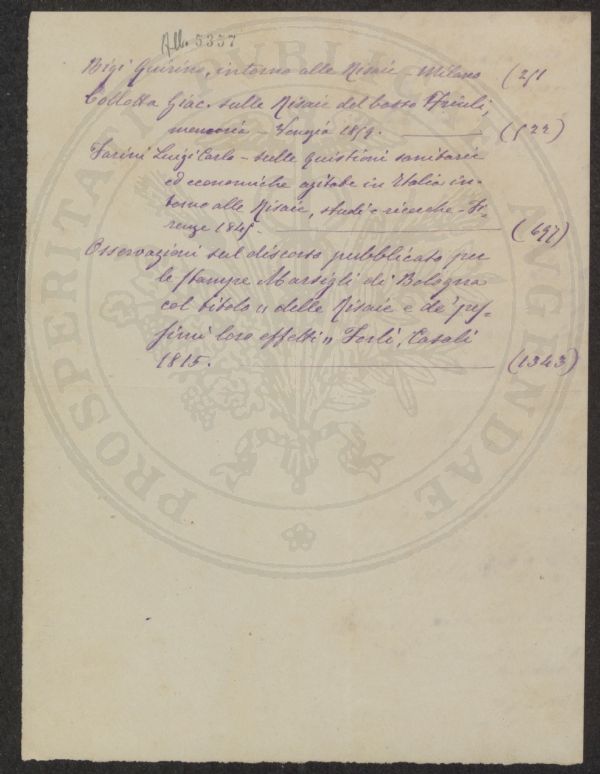 All. 5357
Bigi Quirino, intorno alle Risaie - Milano (251
Collotta Giac. sulle Risaie del basso Friuli,
memoria - Venezia 185
Farini Luigi Carlo - sulle quistioni sanitarie
ed economiche agitate in Italia in-
torno alle Risaie, studi e ricerche - Fi-
renze 1845. (697)
Osservazioni sul discorso pubblicato per
le stampe Marsigli di Bologna
col titolo „ delle Risaie e de' pes-
simi loro effetti „ Forlì, Casali
1815. (1343)
PROSPERITATI PUBLICAE AUGENDAE